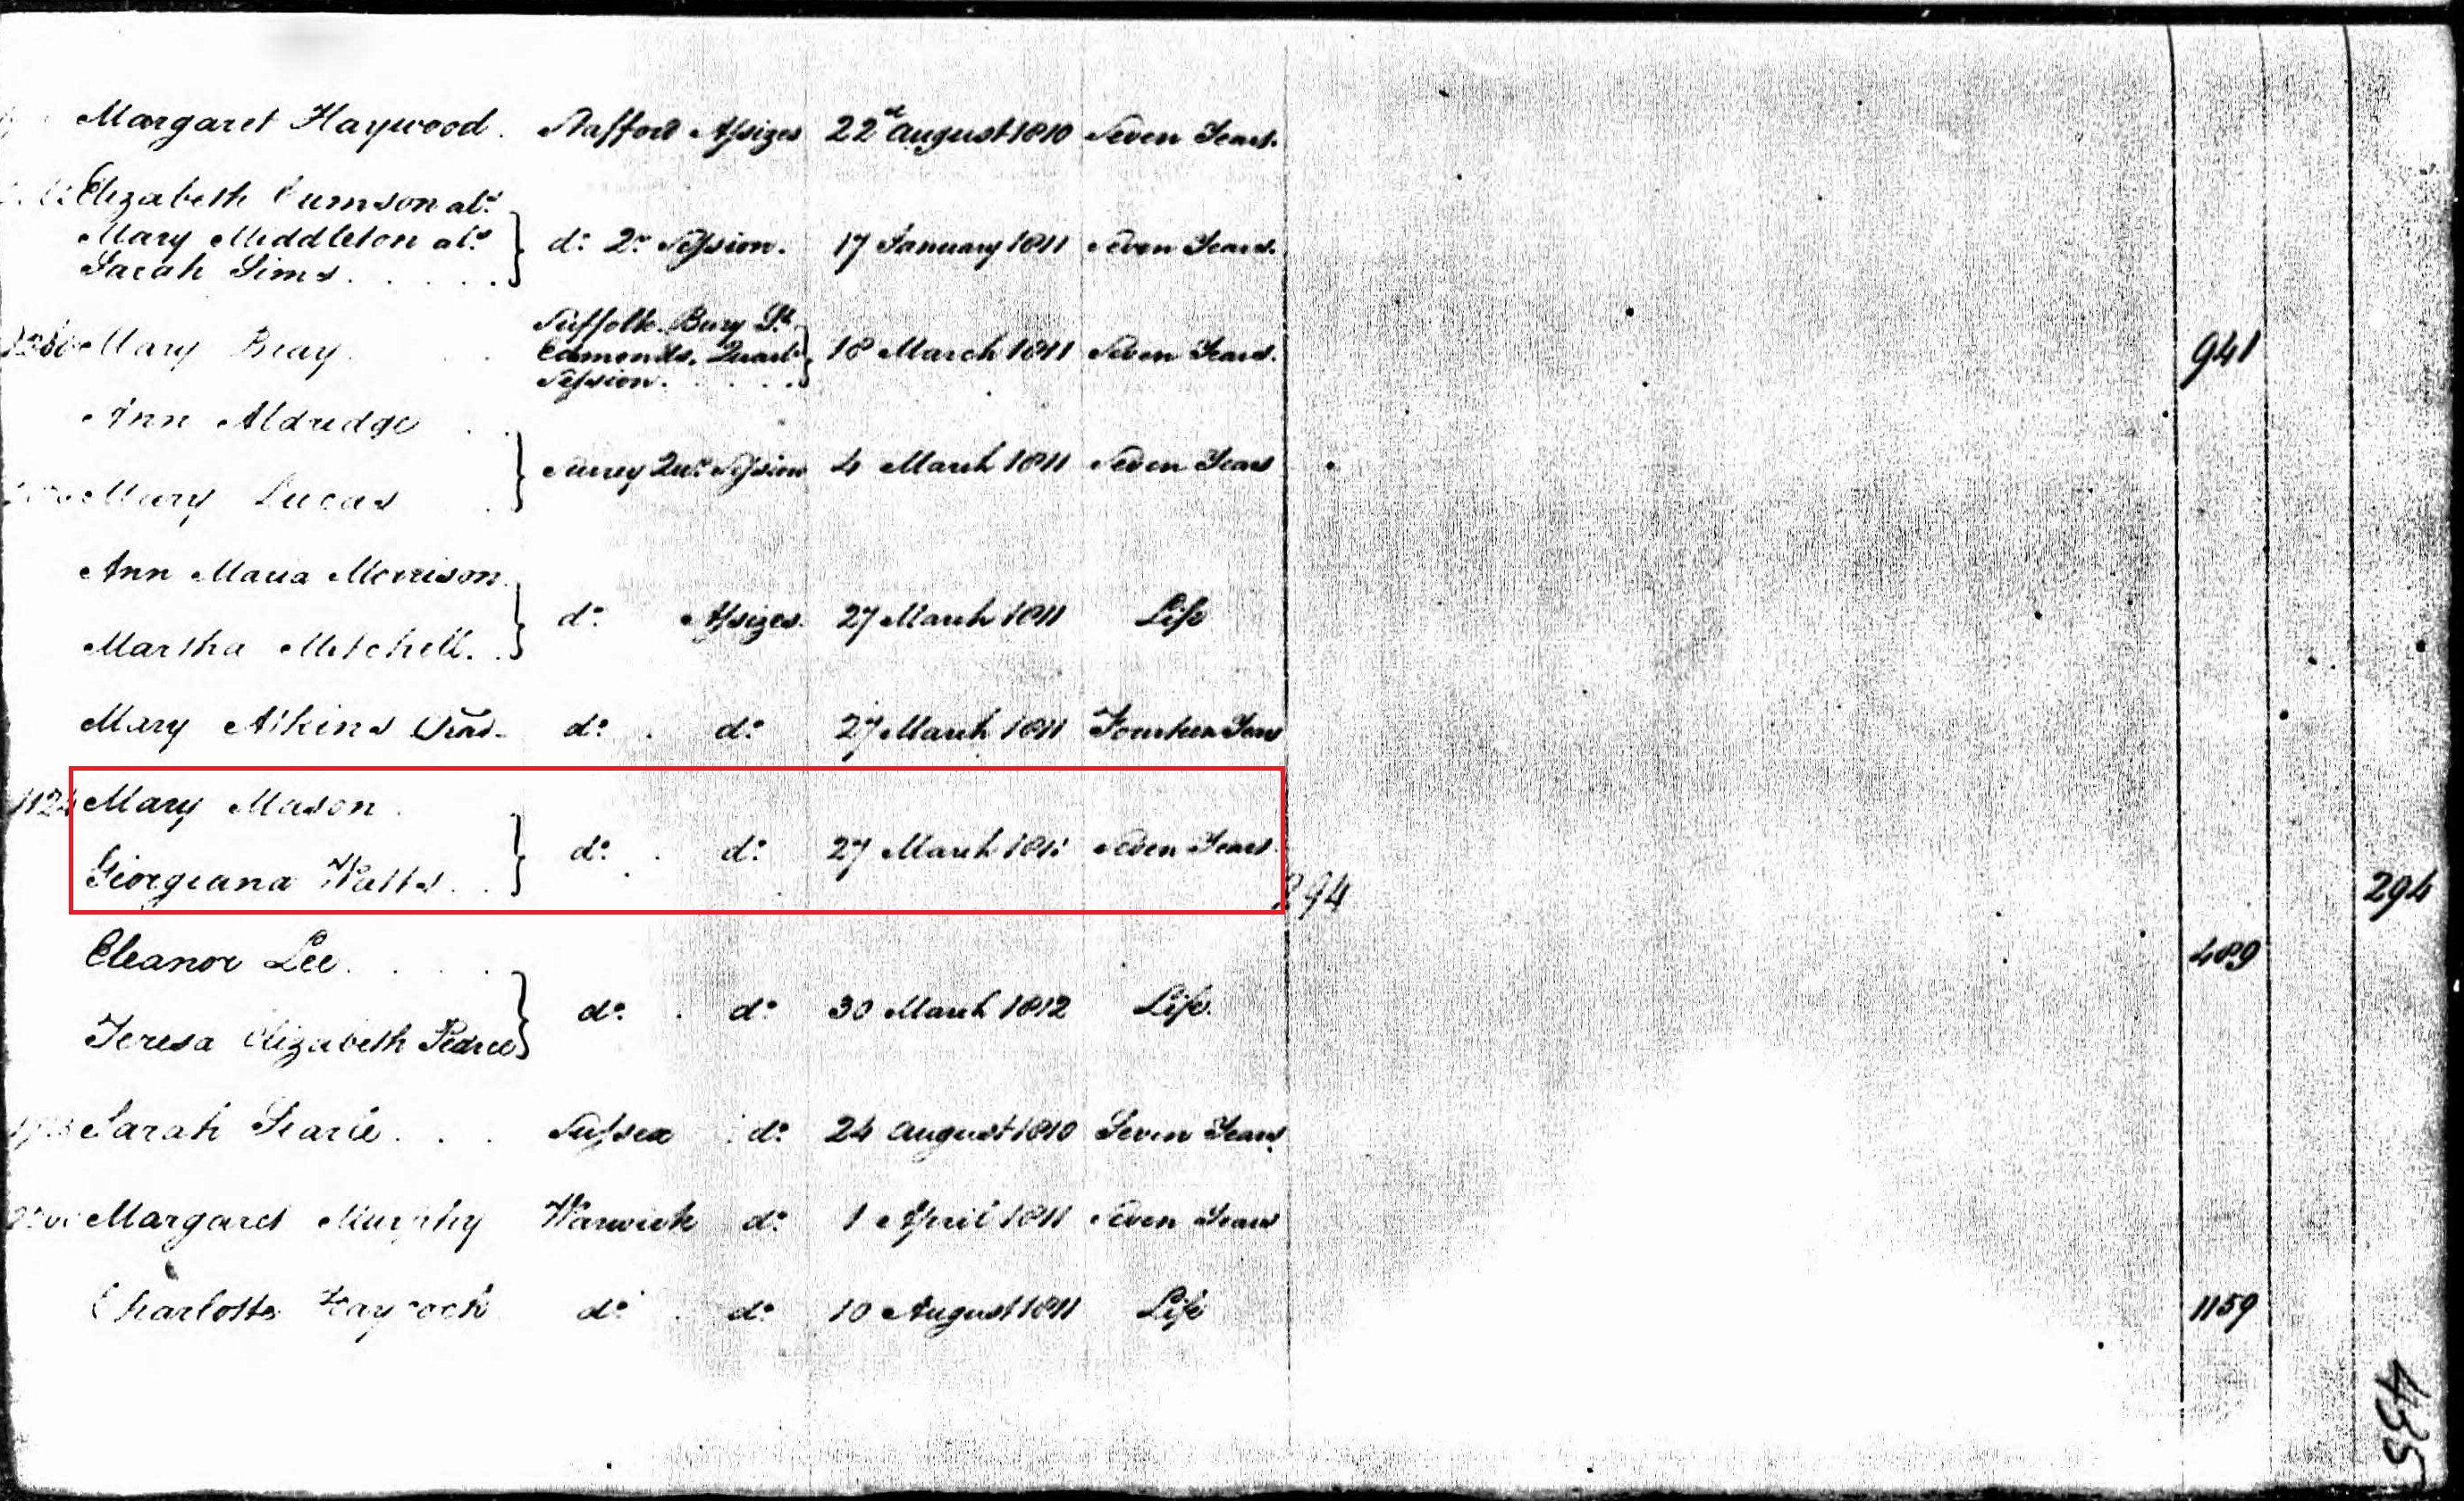 Margaret Haywood. Stafford Assizes 22d August 1810 Seven Years.
Elizabeth als
Mary Middleton als } do Qr Session. 17 January 1811 Seven Years.
Sarah Sims
Suffolk. Bury St
Mary Bray Edmonds. Quart } 18 March 1811 Seven Years. 941
Session.
Ann Aldridge
} Surrey Qur Session 4 March 1811 Seven Years
Mary Lucas
Ann Maria Morrison
} do Assizes. 27 March 1811 Life
Martha Mitchell.
Mary Atkins do do 27 March 1811 Fourteen Years
1124 Mary Mason.
} do do 27 March 1811 Seven Years.
Georgeana Watts. 294 294
Eleanor Lee. 489
} do do 30 March 1812 Life.
Teresa Elizabeth Pearce
Sarah Searle. Sussex do 24 August 1810 Seven Years
Margaret Murphy Warwick do 1 April 1811 Seven Years
Charlotte Haycock do do 10 August 1811 Life 1159
435